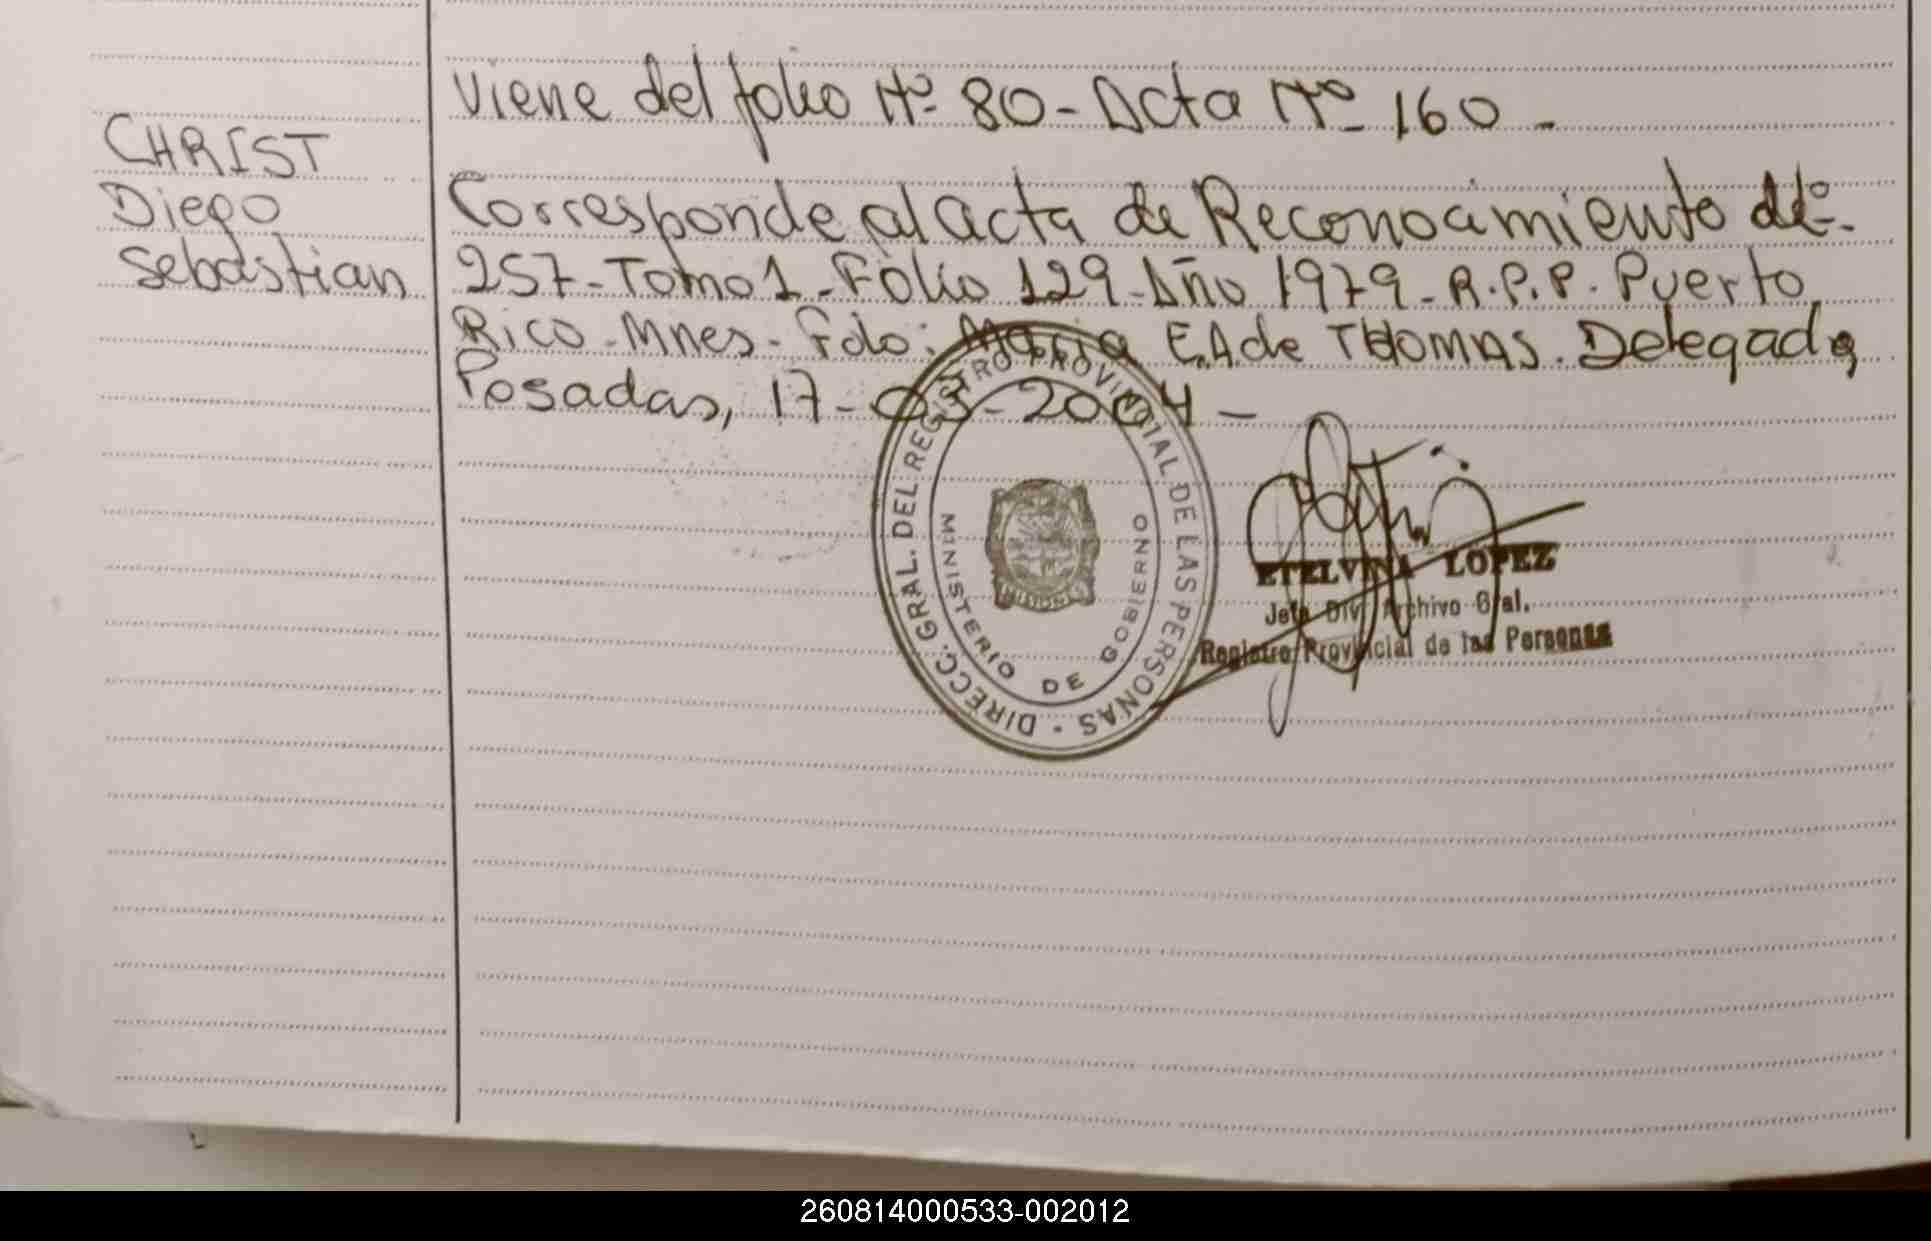 Viene del folio Nº 80 - Acta Nº 160 -
CHRIST
Diego
Sebastian
Corresponde al acta de Reconocimiento Nº
257 - Tomo 1 - Folio 129 - Año 1979 - R.P.P. Puerto
Rico - Mnes - Fdo: Maria E.A de THOMAS. Delegada
Posadas, 17-03-2004 -
DIRECC. GRAL. DEL REGISTRO PROVINCIAL DE LAS PERSONAS
MINISTERIO DE GOBIERNO
MISIONES
ETELVINA LOPEZ
Jefa Div. Archivo Gral.
Registro Provincial de las Personas
260814000533-002012